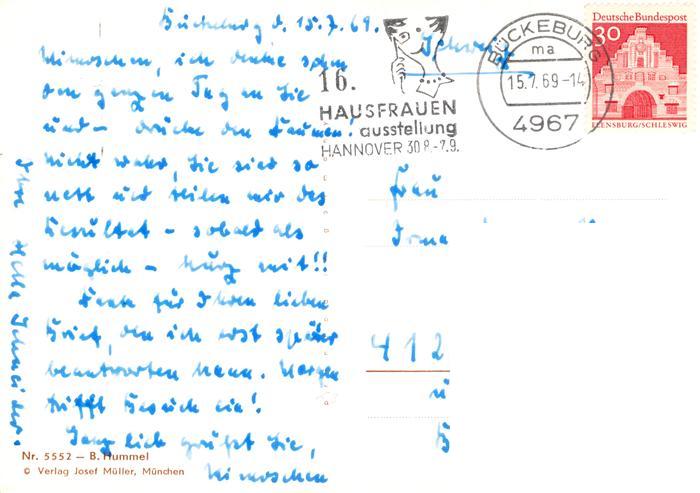 Bückeburg d. 15.7.69.
Mimoschen, ich denke schon
den ganzen Tag an Sie
und – drücke den Daumen!
Nicht wahr, Sie sind so
nett und teilen mir das
Resultat – sobald als
möglich – kurz mit!!
Dank für Ihren lieben
Brief, den ich erst später
beantworten kann. Morgen
trifft Besuch ein!
Ganz lich grüßt Sie,
Mimoschen
Ihre Hella Schneider.
Nr. 5552 — B. Hummel
© Verlag Josef Müller, München
16.
HAUSFRAUEN
ausstellung
HANNOVER 30.8.-7.9.
BÜCKEBURG
ma
15.7.69-14
4967
Deutsche Bundespost
30
FLENSBURG/SCHLESWIG
Frau
Irma
412